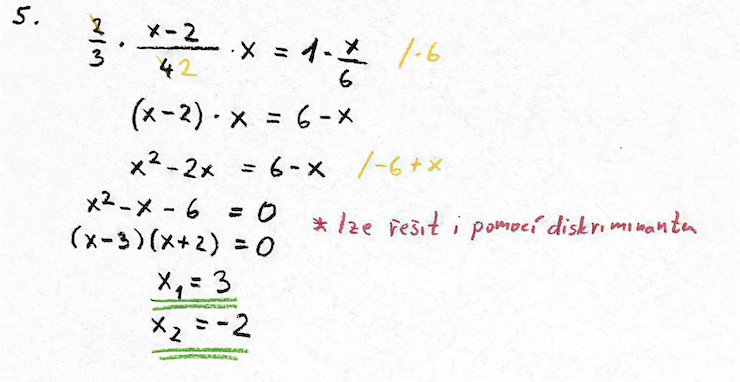 5.
2/3 · (x-2)/4 2 · x = 1 - x/6 /·6
(x-2) · x = 6-x
x²-2x = 6-x /-6+x
x²-x-6 = 0
(x-3)(x+2) = 0
* lze řešit i pomocí diskriminantu
x₁ = 3
x₂ = -2